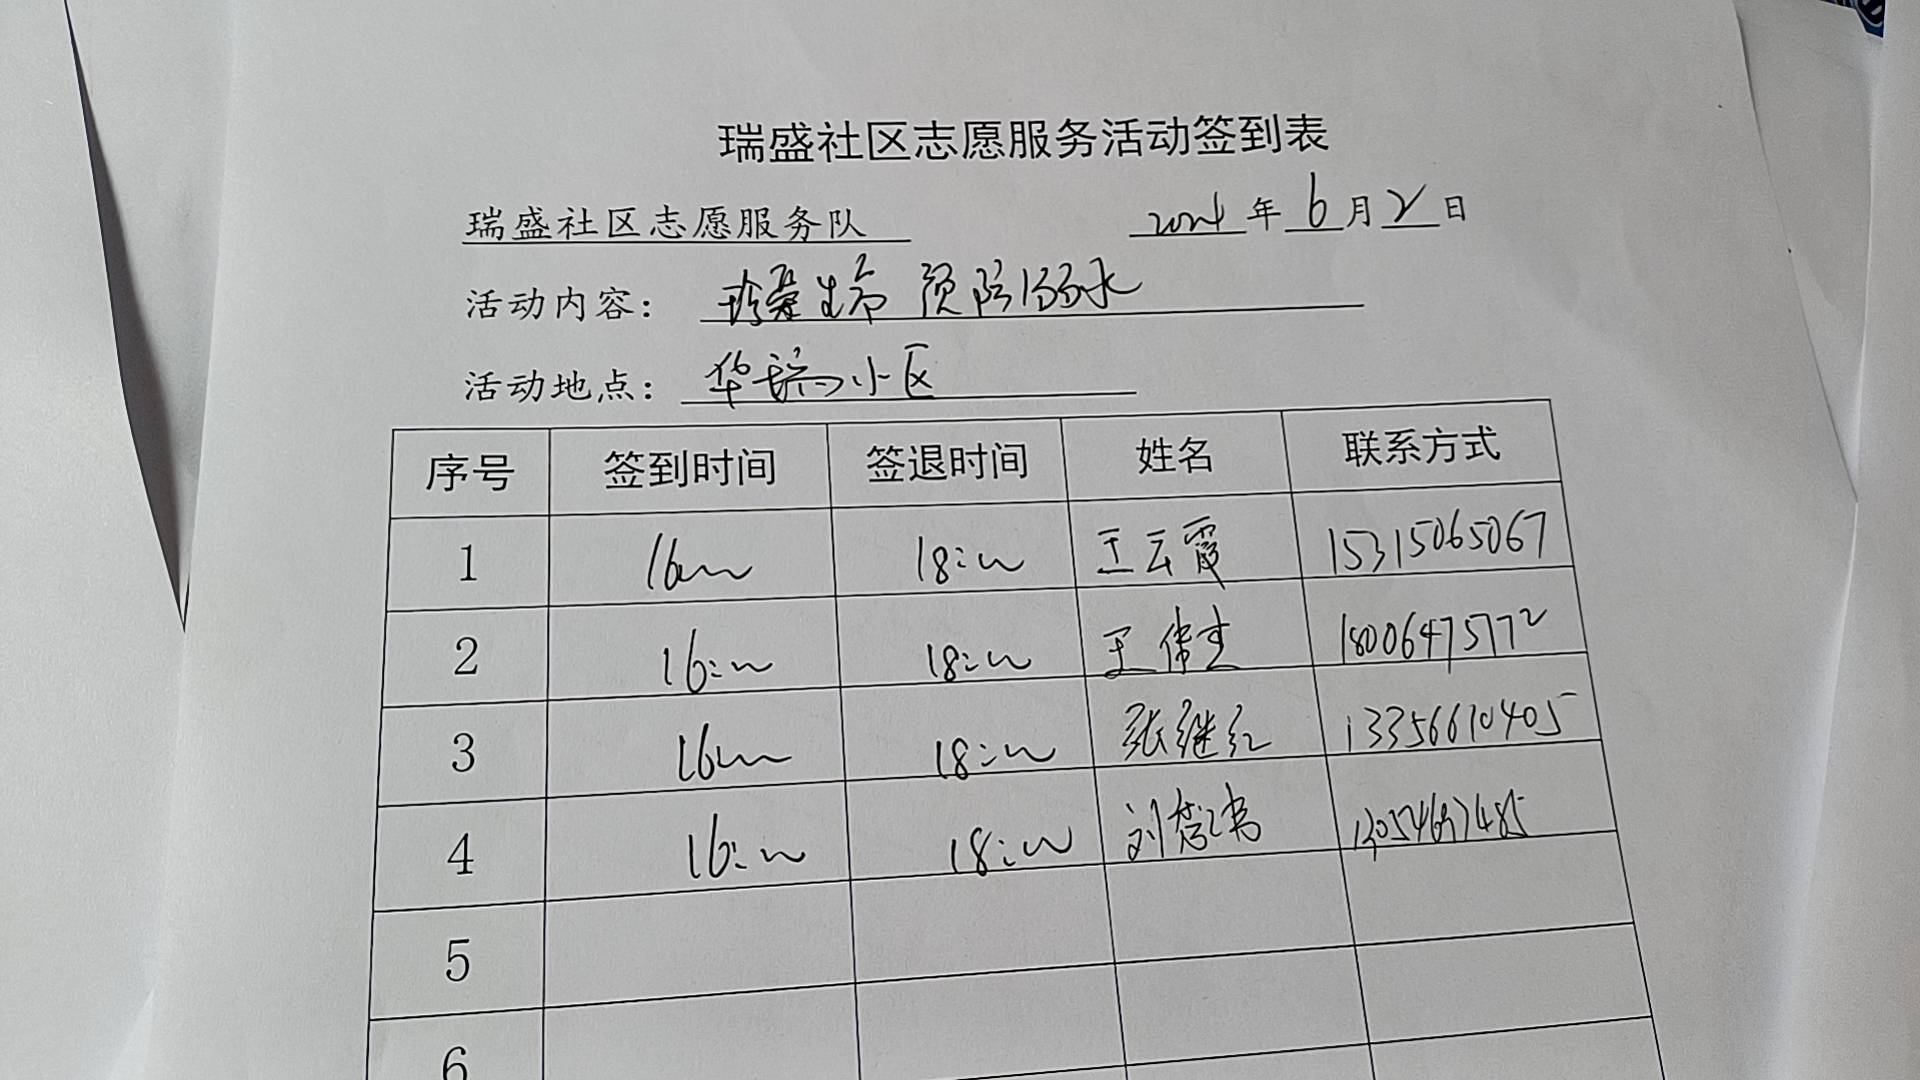 瑞盛社区志愿服务活动签到表
瑞盛社区志愿服务队 2024年6月2日
活动内容： 珍爱生命 预防溺水
活动地点： 华瑞小区
序号 签到时间 签退时间 姓名 联系方式
1 16:00 18:00 王云霞 15315065067
2 16:00 18:00 王伟杰 18006475772
3 16:00 18:00 张继红 13356610405
4 16:00 18:00 刘
5
6